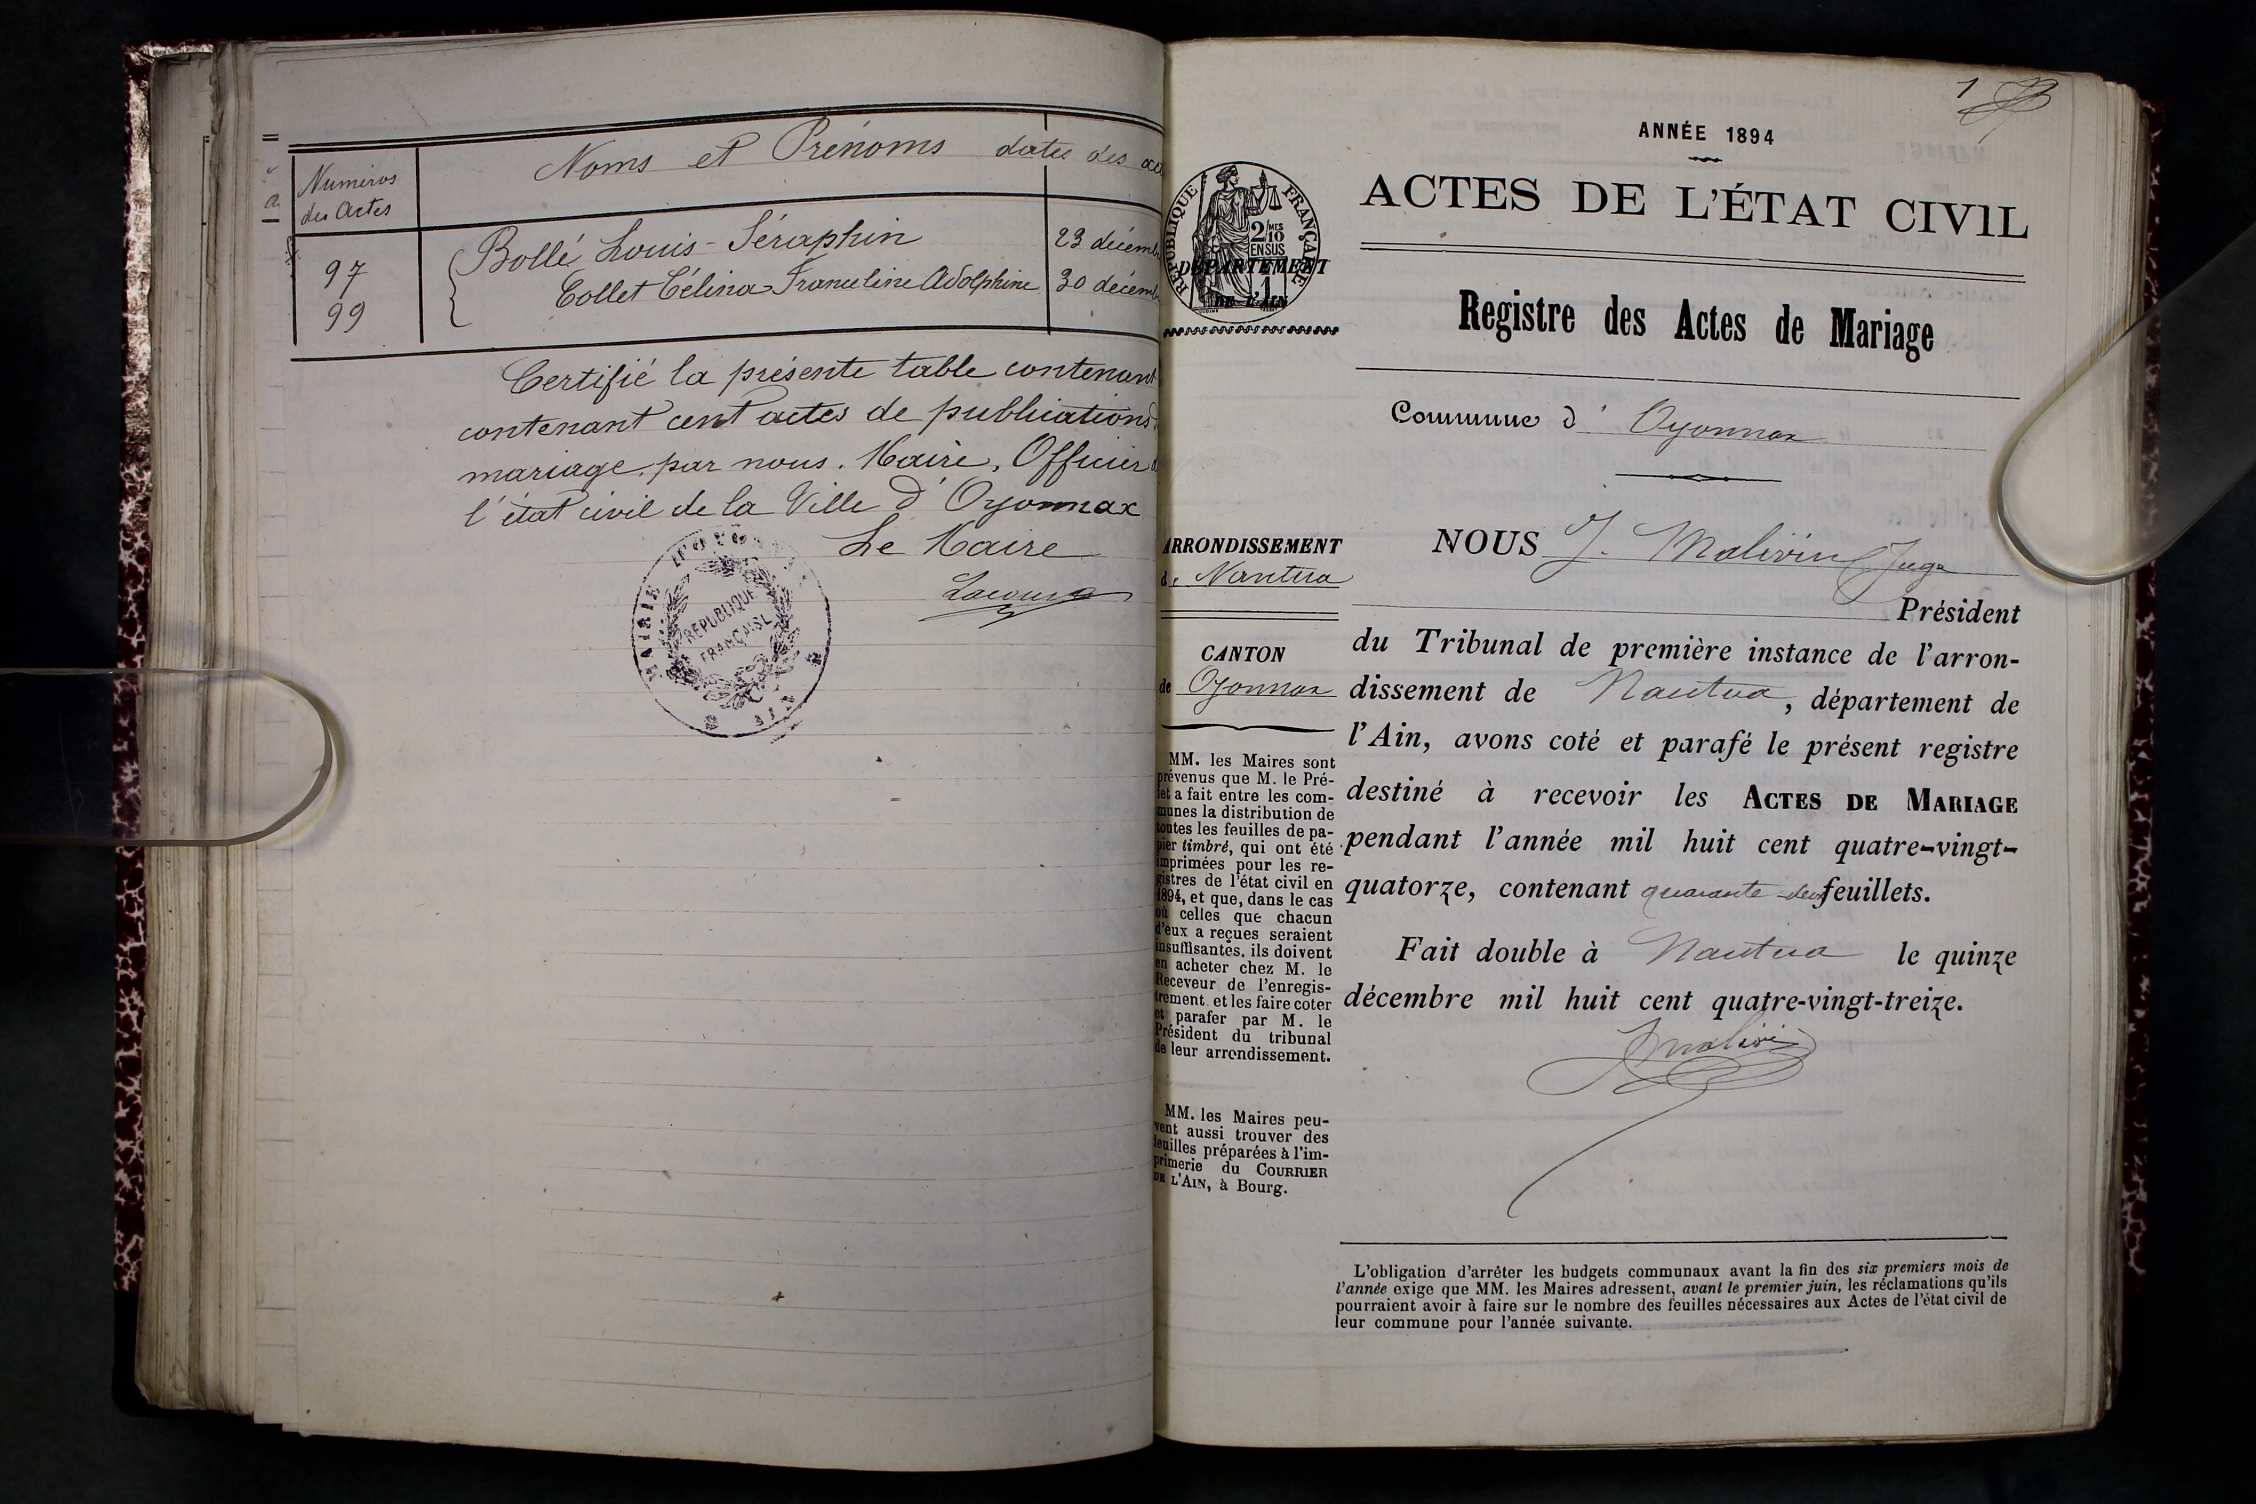 Numéros
des Actes
Noms et Prénoms
dates des
97
99
Bollé Louis-Séraphin
Collet Célina Franceline Adolphine
23 décemb
30 décemb
Certifié la présente table contenant
contenant cent actes de publications
mariage, par nous. Maire, Officier
l'état civil de la Ville d'Oyonnax
Le Maire
MAIRIE
RÉPUBLIQUE
FRANÇAISE
AIN
1
ANNÉE 1894
ACTES DE L'ÉTAT CIVIL
RÉPUBLIQUE FRANÇAISE
2/10 MES
EN SUS
DÉPARTEMENT
DE L'AIN
Registre des Actes de Mariage
Commune d' Oyonnax
ARRONDISSEMENT
de Nantua
CANTON
de Oyonnax
MM. les Maires sont
prévenus que M. le Pré-
fet a fait entre les com-
munes la distribution de
toutes les feuilles de pa-
pier timbré, qui ont été
imprimées pour les re-
gistres de l'état civil en
1894, et que, dans le cas
où celles que chacun
d'eux a reçues seraient
insuffisantes, ils doivent
en acheter chez M. le
Receveur de l'enregis-
trement et les faire coter
et parafer par M. le
Président du tribunal
de leur arrondissement.
MM. les Maires peu-
vent aussi trouver des
feuilles préparées à l'im-
primerie du COURRIER
DE L'AIN, à Bourg.
NOUS J. Malivin Juge
Président
du Tribunal de première instance de l'arron-
dissement de Nantua, département de
l'Ain, avons coté et parafé le présent registre
destiné à recevoir les ACTES DE MARIAGE
pendant l'année mil huit cent quatre-vingt-
quatorze, contenant quarante-deux feuillets.
Fait double à Nantua le quinze
décembre mil huit cent quatre-vingt-treize.
L'obligation d'arrêter les budgets communaux avant la fin des six premiers mois de
l'année exige que MM. les Maires adressent, avant le premier juin, les réclamations qu'ils
pourraient avoir à faire sur le nombre des feuilles nécessaires aux Actes de l'état civil de
leur commune pour l'année suivante.